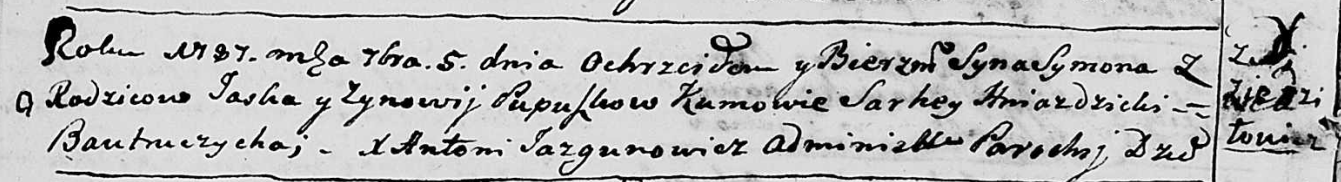 Roku 1787. mca 7bra. 5. dnia Ochrzciłem y Bierzm Syna Symona Z
9 Rodzicow Jaska y Zynowij Pupuszkow Kumowie Sarhey Hniazdzicki =
Bautruczycha; - X Antoni Jazgunowicz Administr Parochij Dzied
Z
łowicz